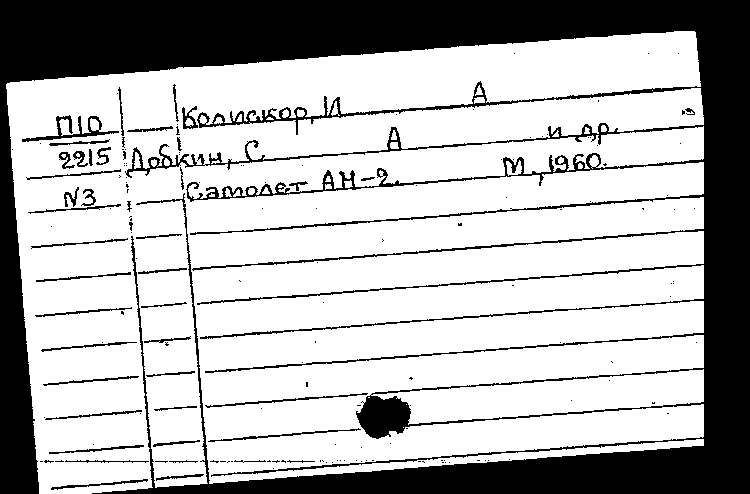 П10 Колискор, И А
2215 Добкин, С. А и др.
N3 Самолет АН-2. М., 1960.